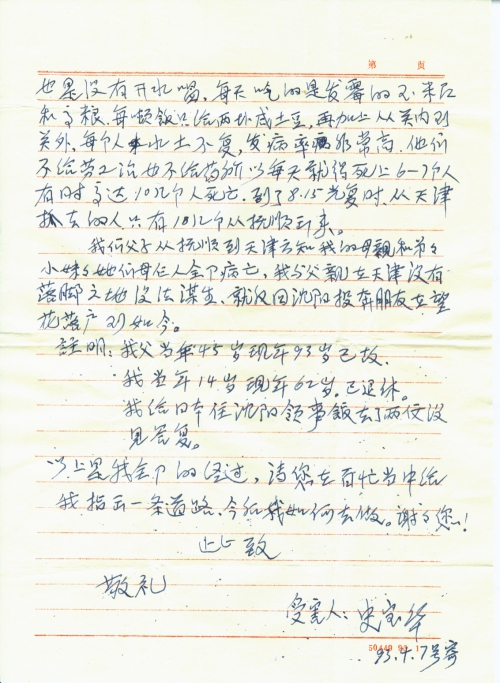 第　　页
也是没有开水喝，每天吃的是发霉的玉米
和高粱，每顿饭只给两块咸土豆，再加上从关内到
关外，每个人水土不复，发病率非常高，他们
不给劳工治也不给药所以每天就得死上6-7个人
有时高达10几个人死亡，到了8.15光复时，从天津
抓去的人只有10几个从抚顺到来。
我们父子从抚顺到天津去知我的母亲和弟弟
小妹妹她们母仨人全部病亡，我与父亲在天津没有
落脚之地没法谋生，就又回沈阳投奔朋友在望
花落户到如今。
註明：我父当年45岁现年93岁已故.
我当年14岁现年62岁.已退休。
我给日本住沈阳领事馆去了两次没
见答复。
以上是我全部的经过，请您在百忙当中给
我指出一条道路，今后我如何去做。谢谢您！
此致
敬礼
受害人：史宝华
93.4.7号寄